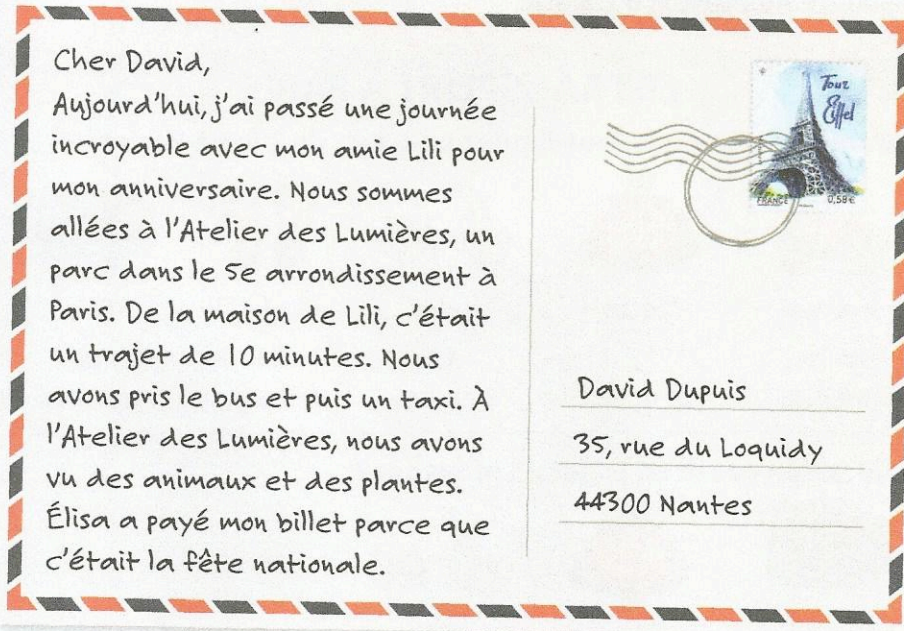 Cher David,
Aujourd'hui, j'ai passé une journée
incroyable avec mon amie Lili pour
mon anniversaire. Nous sommes
allées à l'Atelier des Lumières, un
parc dans le 5e arrondissement à
Paris. De la maison de Lili, c'était
un trajet de 10 minutes. Nous
avons pris le bus et puis un taxi. À
l'Atelier des Lumières, nous avons
vu des animaux et des plantes.
Élisa a payé mon billet parce que
c'était la fête nationale.
Tour
Eiffel
FRANCE 0,58€
David Dupuis
35, rue du Loquidy
44300 Nantes